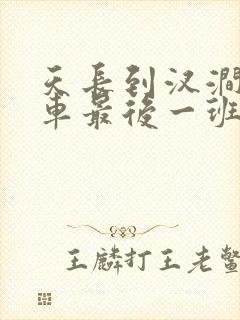 天長到汊澗
車最後一班
王麟打王老鳖